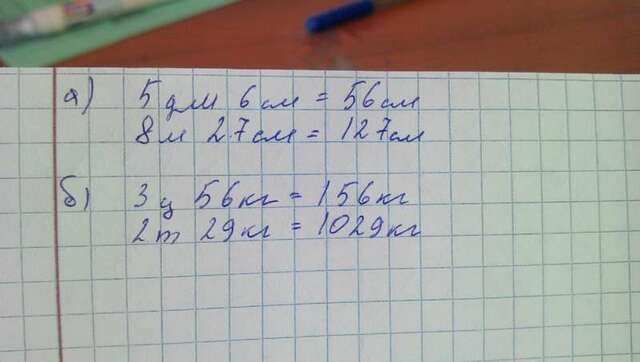 а) 5 дм 6 см = 56 см
8 м 27 см = 127 см
б) 3 ц 56 кг = 156 кг
2 т 29 кг = 1029 кг